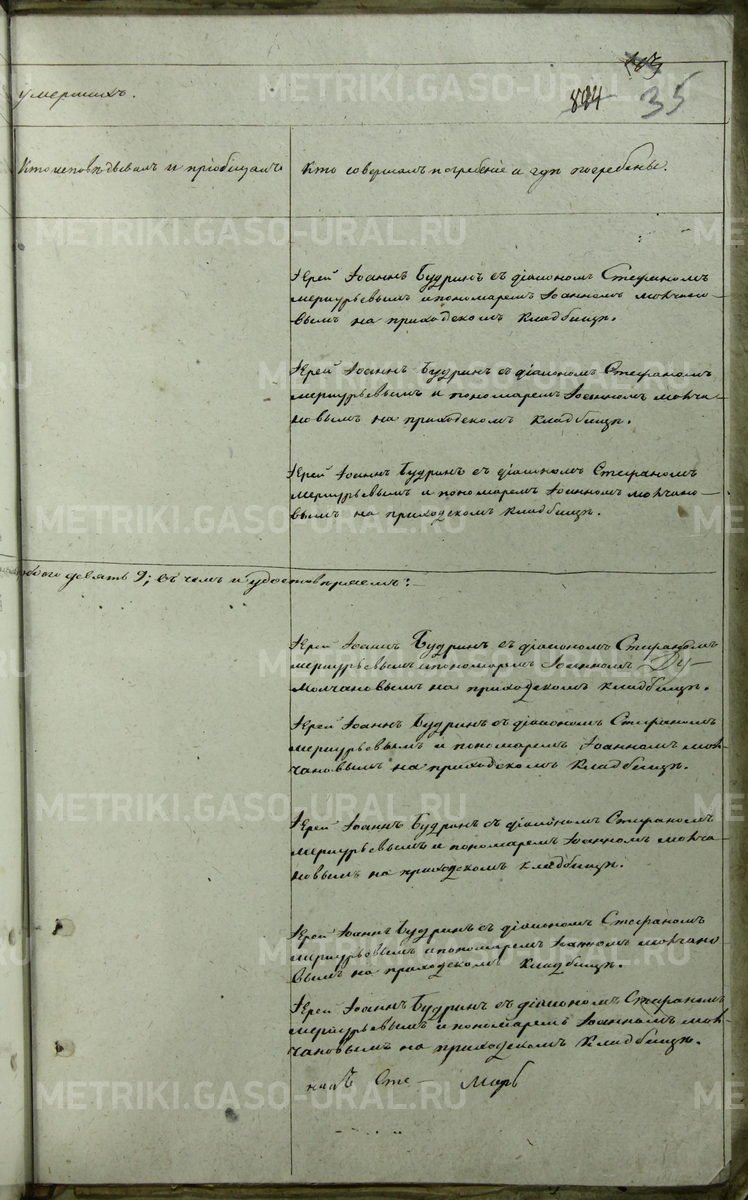 умершихъ.
844 35
Кто исповѣдывалъ и пріобщалъ
Кто совершалъ погребеніе и гдѣ погребены.
Іерей Іоаннъ Будринъ съ діакономъ Стефаномъ
Меркурьевымъ и пономаремъ Іоанномъ Молчано-
вымъ на приходскомъ кладбищѣ.
Іерей Іоаннъ Будринъ съ діакономъ Стефаномъ
Меркурьевымъ и пономаремъ Іоанномъ Молча-
новымъ на приходскомъ кладбищѣ.
Іерей Іоаннъ Будринъ съ діакономъ Стефаномъ
Меркурьевымъ и пономаремъ Іоанномъ Молчано-
вымъ на приходскомъ кладбищѣ.
девять 9; въ чемъ и удостовѣряемъ:
Іерей Іоаннъ Будринъ съ діакономъ Стефаномъ
Меркурьевымъ и пономаремъ Іоанномъ Ду-
Молчановымъ на приходскомъ кладбищѣ.
Іерей Іоаннъ Будринъ съ діакономъ Стефаномъ
Меркурьевымъ и пономаремъ Іоанномъ Мол-
чановымъ на приходскомъ кладбищѣ.
Іерей Іоаннъ Будринъ съ діакономъ Стефаномъ
Меркурьевымъ и пономаремъ Іоанномъ Молча-
новымъ на приходскомъ кладбищѣ.
Іерей Іоаннъ Будринъ съ діакономъ Стефаномъ
Меркурьевымъ и пономаремъ Іоанномъ Молчано
вымъ на приходскомъ кладбищѣ.
Іерей Іоаннъ Будринъ съ діакономъ Стефаномъ
Меркурьевымъ и пономаремъ Іоанномъ Мол-
чановымъ на приходскомъ кладбищѣ.
Сте-
METRIKI.GASO-URAL.RU